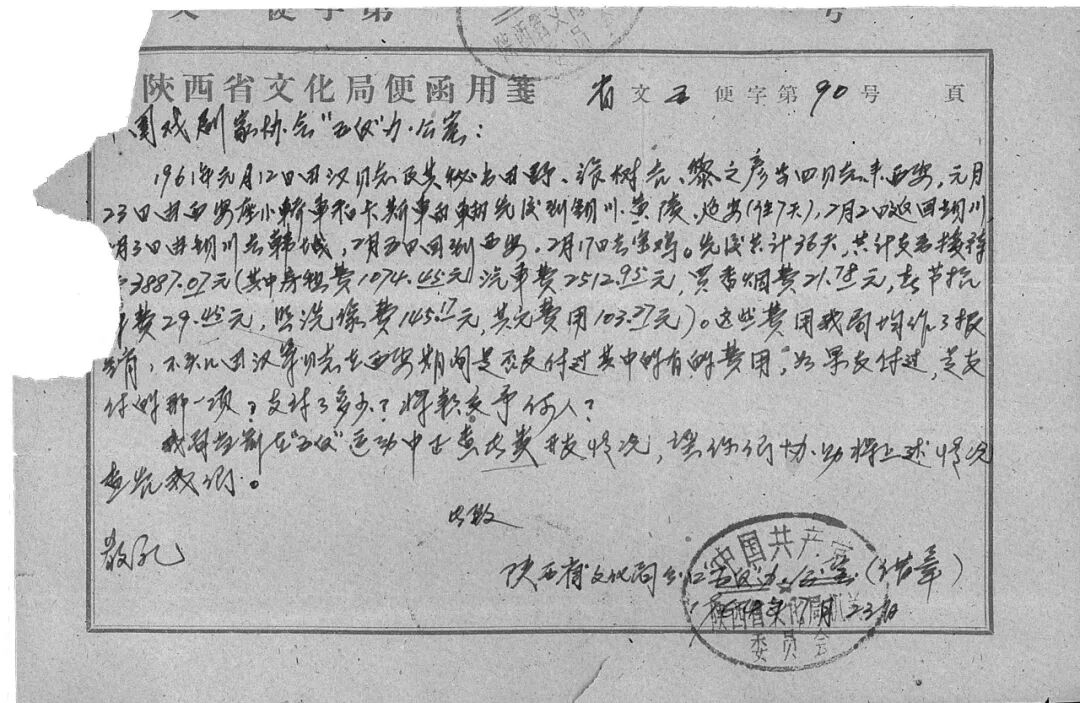 文 便字第 号
陕西省文化局便函用笺 省文五便字第90号 頁
国戏剧家协会"五反"办公室：
1961年元月12日田汉同志及其秘书田野、张树光、黎之彦等四同志来西安，元月
23日由西安座小轿车和卡斯车两辆先后到铜川、黄陵、延安（住7天），2月2日返回铜川
月3日由铜川去韩城，2月五日回到西安，2月17日去宝鸡。先后共计36天，共计支各接待
3887.07元（其中房租费1074.45元，汽车费2512.95元，买香烟费21.78元，春节
费29.45元，照洗像费145.17元，其它费用103.27元）。这些费用我局均作了报
销，不知田汉等同志在西安期间是否支付过其中的有的费用，如果支付过，是支
付的那一项？支付了多少？将款交予何人？
我局在"五反"运动中正查上述开支情况，望你们协助将上述情况
查告我们。
此致
敬礼
陕西省文化局"五反"办公室（代章）
7月23日
中国共产党
陕西省文化局机关
委员会
陕西省文
员会